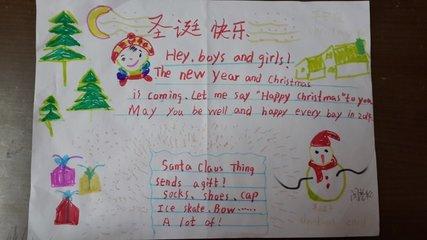 圣诞快乐
Hey, boys and girls!
The new year and Christmas
is coming. Let me say "Happy Christmas" to you.
May you be well and happy every bay in
Santa Claus Thing
sends a gift!
socks, shoes, cap
Ice skate. Bow......
A lot of!